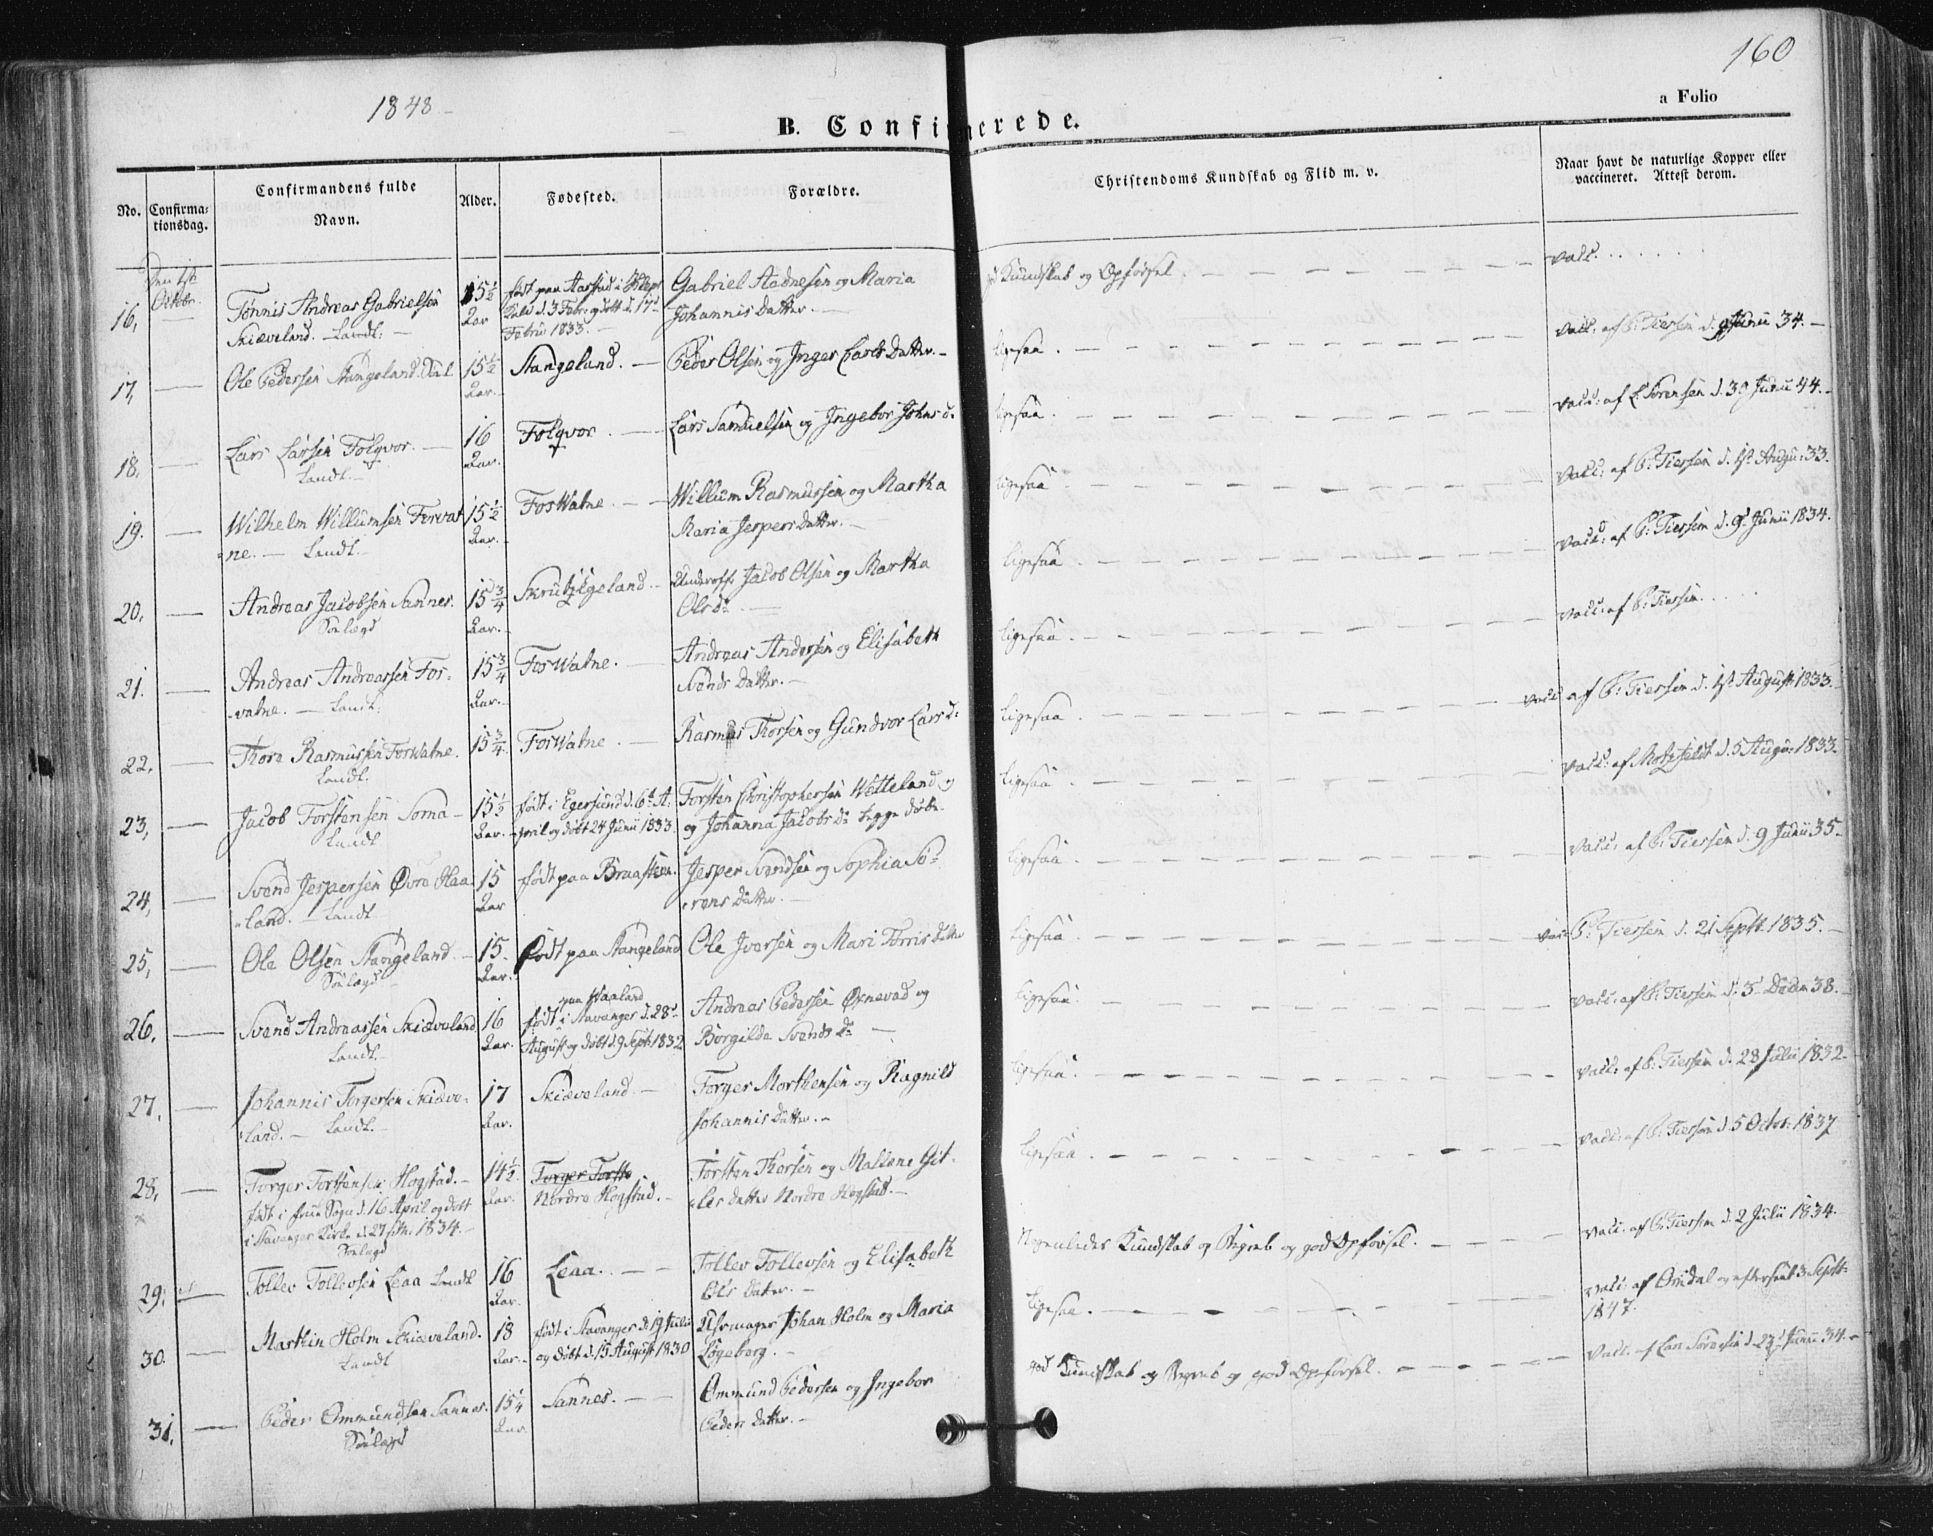 160
1848
a Folio
B. Confirmerede.
No.
Confirma=
tionsdag.
Confirmandens fulde
Navn.
Alder.
Fødested.
Forældre.
Christendoms Kundskab og Flid m. v.
Naar havt de naturlige Kopper eller
vaccineret. Attest derom.
Den 1st
Octobr.
16, Tønnis Andreas Gabrielsen
Skiæveland. Landt.
15½
Aar
født paa Aarstad i
d. 3 Febr. og døbt d. 17d
Februr 1833.
Gabriel Aadnesen og Maria
Johannis Datter.
god Kundskab og Opførsel.
vacc.
17, Ole Pedersen Stangeland.
15½
Aar.
Stangeland.
Peder Olsen og Inger Carls Datter.
ligesaa.
vacc. af P. Tiersen d. 9 Junii 34.
18, Lars Larsen Folgvor.
Landt.
16
Aar.
Folgvor.
Lars Samuelsen og Ingebor Johns d.
ligesaa.
vacc: af L. Sørensen d. 30 Junii 44.
19. Wilhelm Willumsen Forvat
ne. Landt.
15½
Aar.
Foswatne.
Willum Rasmussen og Martha
Maria Jespers Datter.
ligesaa
vacc: af P. Tiersen d. 1st Augu: 33.
20. Andreas Jacobsen Sannes.
Sølægd
15¾
Aar.
Skrutzigeland.
Underoff. Jacob Olsen og Martha
Olsdr.
ligesaa.
vacc: af P. Tiersen d. 9d Junii 1834.
21. Andreas Andreassen Fos-
vatne. Landt.
15¾
Aar.
Foswatne.
Andreas Andersen og Elisabeth
Svends Datter.
ligesaa.
vacc: af P. Tiersen.
22. Thore Rasmussen Foswatne.
Landt.
15¾
Foswatne.
Rasmus Thorsen og Gundvor Lars d:
ligesaa.
vacc af P. Tiersen d. 1st August 1833.
23, Jacob Torstensen Soma
Landt
15½
Aar.
født i Egersund d. 6d A-
pril og døbt 24 Junii 1833.
Torsten Christophersen Wetteland og
og Johanna Jacobs Dr
ligesaa.
vacc: af Motzfeldt d. 5 Augu: 1833.
24, Svend Jespersen Øvre Haa
land. Landt
15
Aar
født paa Braasteen.
Jesper Svendsen og Sophia Sø-
rens Datter.
ligesaa.
vacc: af P. Tiersen d. 9 Junii 35.
25, Ole Olsen Stangeland.
Sølægd
15.
Aar.
Født paa Stangeland
Ole Iversen og Mari Torris Datter
ligesaa
vacc P. Tiersen d. 21 Septr 1835.
26, Svend Andreassen Skiæveland
Landt.
16
Aar.
paa Waaland
født i Stavanger d. 28d
August og døbt d. 9 Septr 1832
Andreas Pedersen Ørnevad og
Borgilda Svends Dr
ligesaa.
vacc: af P. Tiersen d. 3d Decem 38.
27, Johannis Torgersen Skiæve-
land. Landt.
17
Aar.
Skiæveland.
Torger Morthensen og Ragnild
Johannis Datter.
ligesaa.
vacc: af P. Tiersen d. 28 Julii 1832.
28, Torger Torstensen Hogstad.
født i Frue Sogn d. 16 April og døbt
i Stavanger Kirke d. 27 1834.
Sølægd
14½
Aar.
Torger Torste
Nordre Hogstad.
Torsten Thorsen og Mallene Git-
les Datter Nordre Hogstad.
ligesaa.
vacc: af P. Tiersen d. 5 Octor. 1837
29, Tollev Tollevsen Leaa Landt
16
Aar.
Leaa.
Tollev Tollevsen og Elisabeth
Ols Datter.
Nogenledes Kundskab og Begreb og god Opførsel.
vacc: af P. Tiersen d. 2 Julii 1834.
30. Marthin Holm Skiæveland.
Landt
18
Aar.
født i Stavanger d. 19 Julii
og døbt d. 15 August 1830
Uhrmager Johan Holm og Maria
Løgeberg.
ligesaa.
vacc. af Omdal og efterseet 3 Septr
1847.
31, Peder Ommundsen Sannes.
Sølægd
15¼
Aar
Sannes.
Ommund Pedersen og Ingebor
Peders Datter.
god Kundskab og Begreb og god Opførsel.
vacc. af Lars Sørensen d. 23d Junii 34.